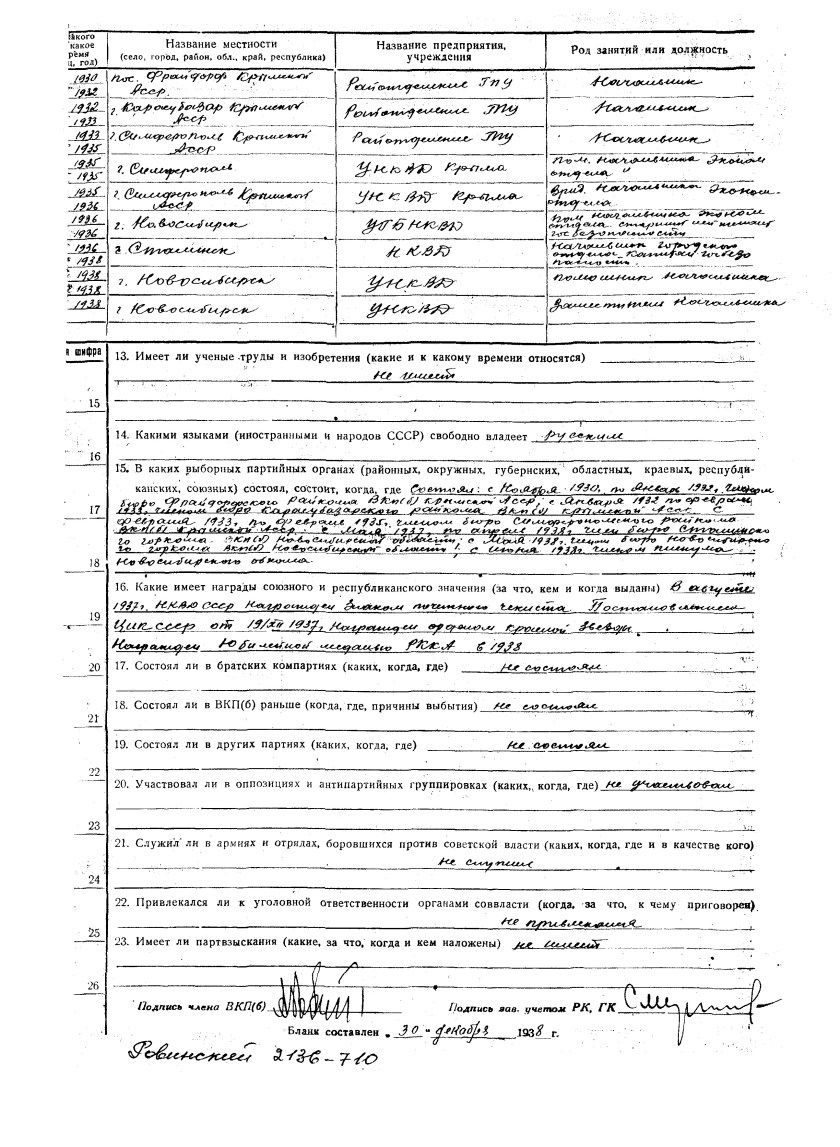 какое
ремя
, год)
Название местности
(село, город, район, обл., край, республика)
Название предприятия,
учреждения
Род занятий или должность
1930
1932
пос. Фрайдорф Крымской
Асср.
Райотделение ГПУ
Начальник
1932
1933
г. Карасубазар Крымской
Асср
Райотделение ГПУ
Начальник
1933
1935
г. Симферополь Крымской
Асср
Райотделение ГПУ
Начальник
1935
1935
г. Симферополь
УНКВД Крыма
Пом. Начальника Эконом
отдела
1935
1936
г. Симферополь Крымской
Асср
УНКВД Крыма
Врид. Начальника Эконом-
отдела.
1936
1936
г. Новосибирск
УГБ НКВД
Пом Начальника Эконом
отдела старший лейтенант
госбезопасности
1936
1938
г Сталинск
НКВД
Начальник городского
отдела капитан госбезо
пасности.
1938
1938
г. Новосибирск
УНКВД
помощник Начальника
1938
г Новосибирск
УНКВД
Заместитель Начальника
я шифра
13. Имеет ли ученые труды и изобретения (какие и к какому времени относятся)
не имеет
15
14. Какими языками (иностранными и народов СССР) свободно владеет русским
16
15. В каких выборных партийных органах (районных, окружных, губернских, областных, краевых, республи-
канских, союзных) состоял, состоит, когда, где Состоял: с Ноября 1930, по Январь 1932г. членом
бюро Фрайдорфского Райкома ВКП(б) Крымской Асср; с Января 1932 по февраль
17
1933г. членом бюро Карасубазарского райкома ВКП(б) Крымской Асср. С
февраля 1933г. по февраль 1935г. членом бюро Симферопольского райкома
ВКП(б) Крымской Асср. с Мая 1937 по апрель 1938г. член бюро Сталинско
го горкома ВКП(б) Новосибирской области; с Мая 1938г. член бюро Новосибирско
го горкома ВКП(б) Новосибирской области; с Июня 1938г. членом пленума
18
Новосибирского обкома.
16. Какие имеет награды союзного и республиканского значения (за что, кем и когда выданы) В августе
19
1937г. НКВД СССР Награжден Знаком почетного чекиста Постановлением
ЦИК СССР от 19/XII 1937г. Награжден орденом красной Звезды.
Награжден Юбилейной медалью РККА в 1938
20
17. Состоял ли в братских компартиях (каких, когда, где) не состоял
18. Состоял ли в ВКП(б) раньше (когда, где, причины выбытия) не состоял
21
19. Состоял ли в других партиях (каких, когда, где) не состоял
22
20. Участвовал ли в оппозициях и антипартийных группировках (каких, когда, где) не участвовал
23
21. Служил ли в армиях и отрядах, боровшихся против советской власти (каких, когда, где и в качестве кого)
не служил
24
22. Привлекался ли к уголовной ответственности органами соввласти (когда, за что, к чему приговорен)
не привлекался
25
23. Имеет ли партвзыскания (какие, за что, когда и кем наложены) не имеет
26
Подпись члена ВКП(б)
Подпись зав. учетом РК, ГК
Бланк составлен „30" декабря 1938 г.
Ровинский 2136-710